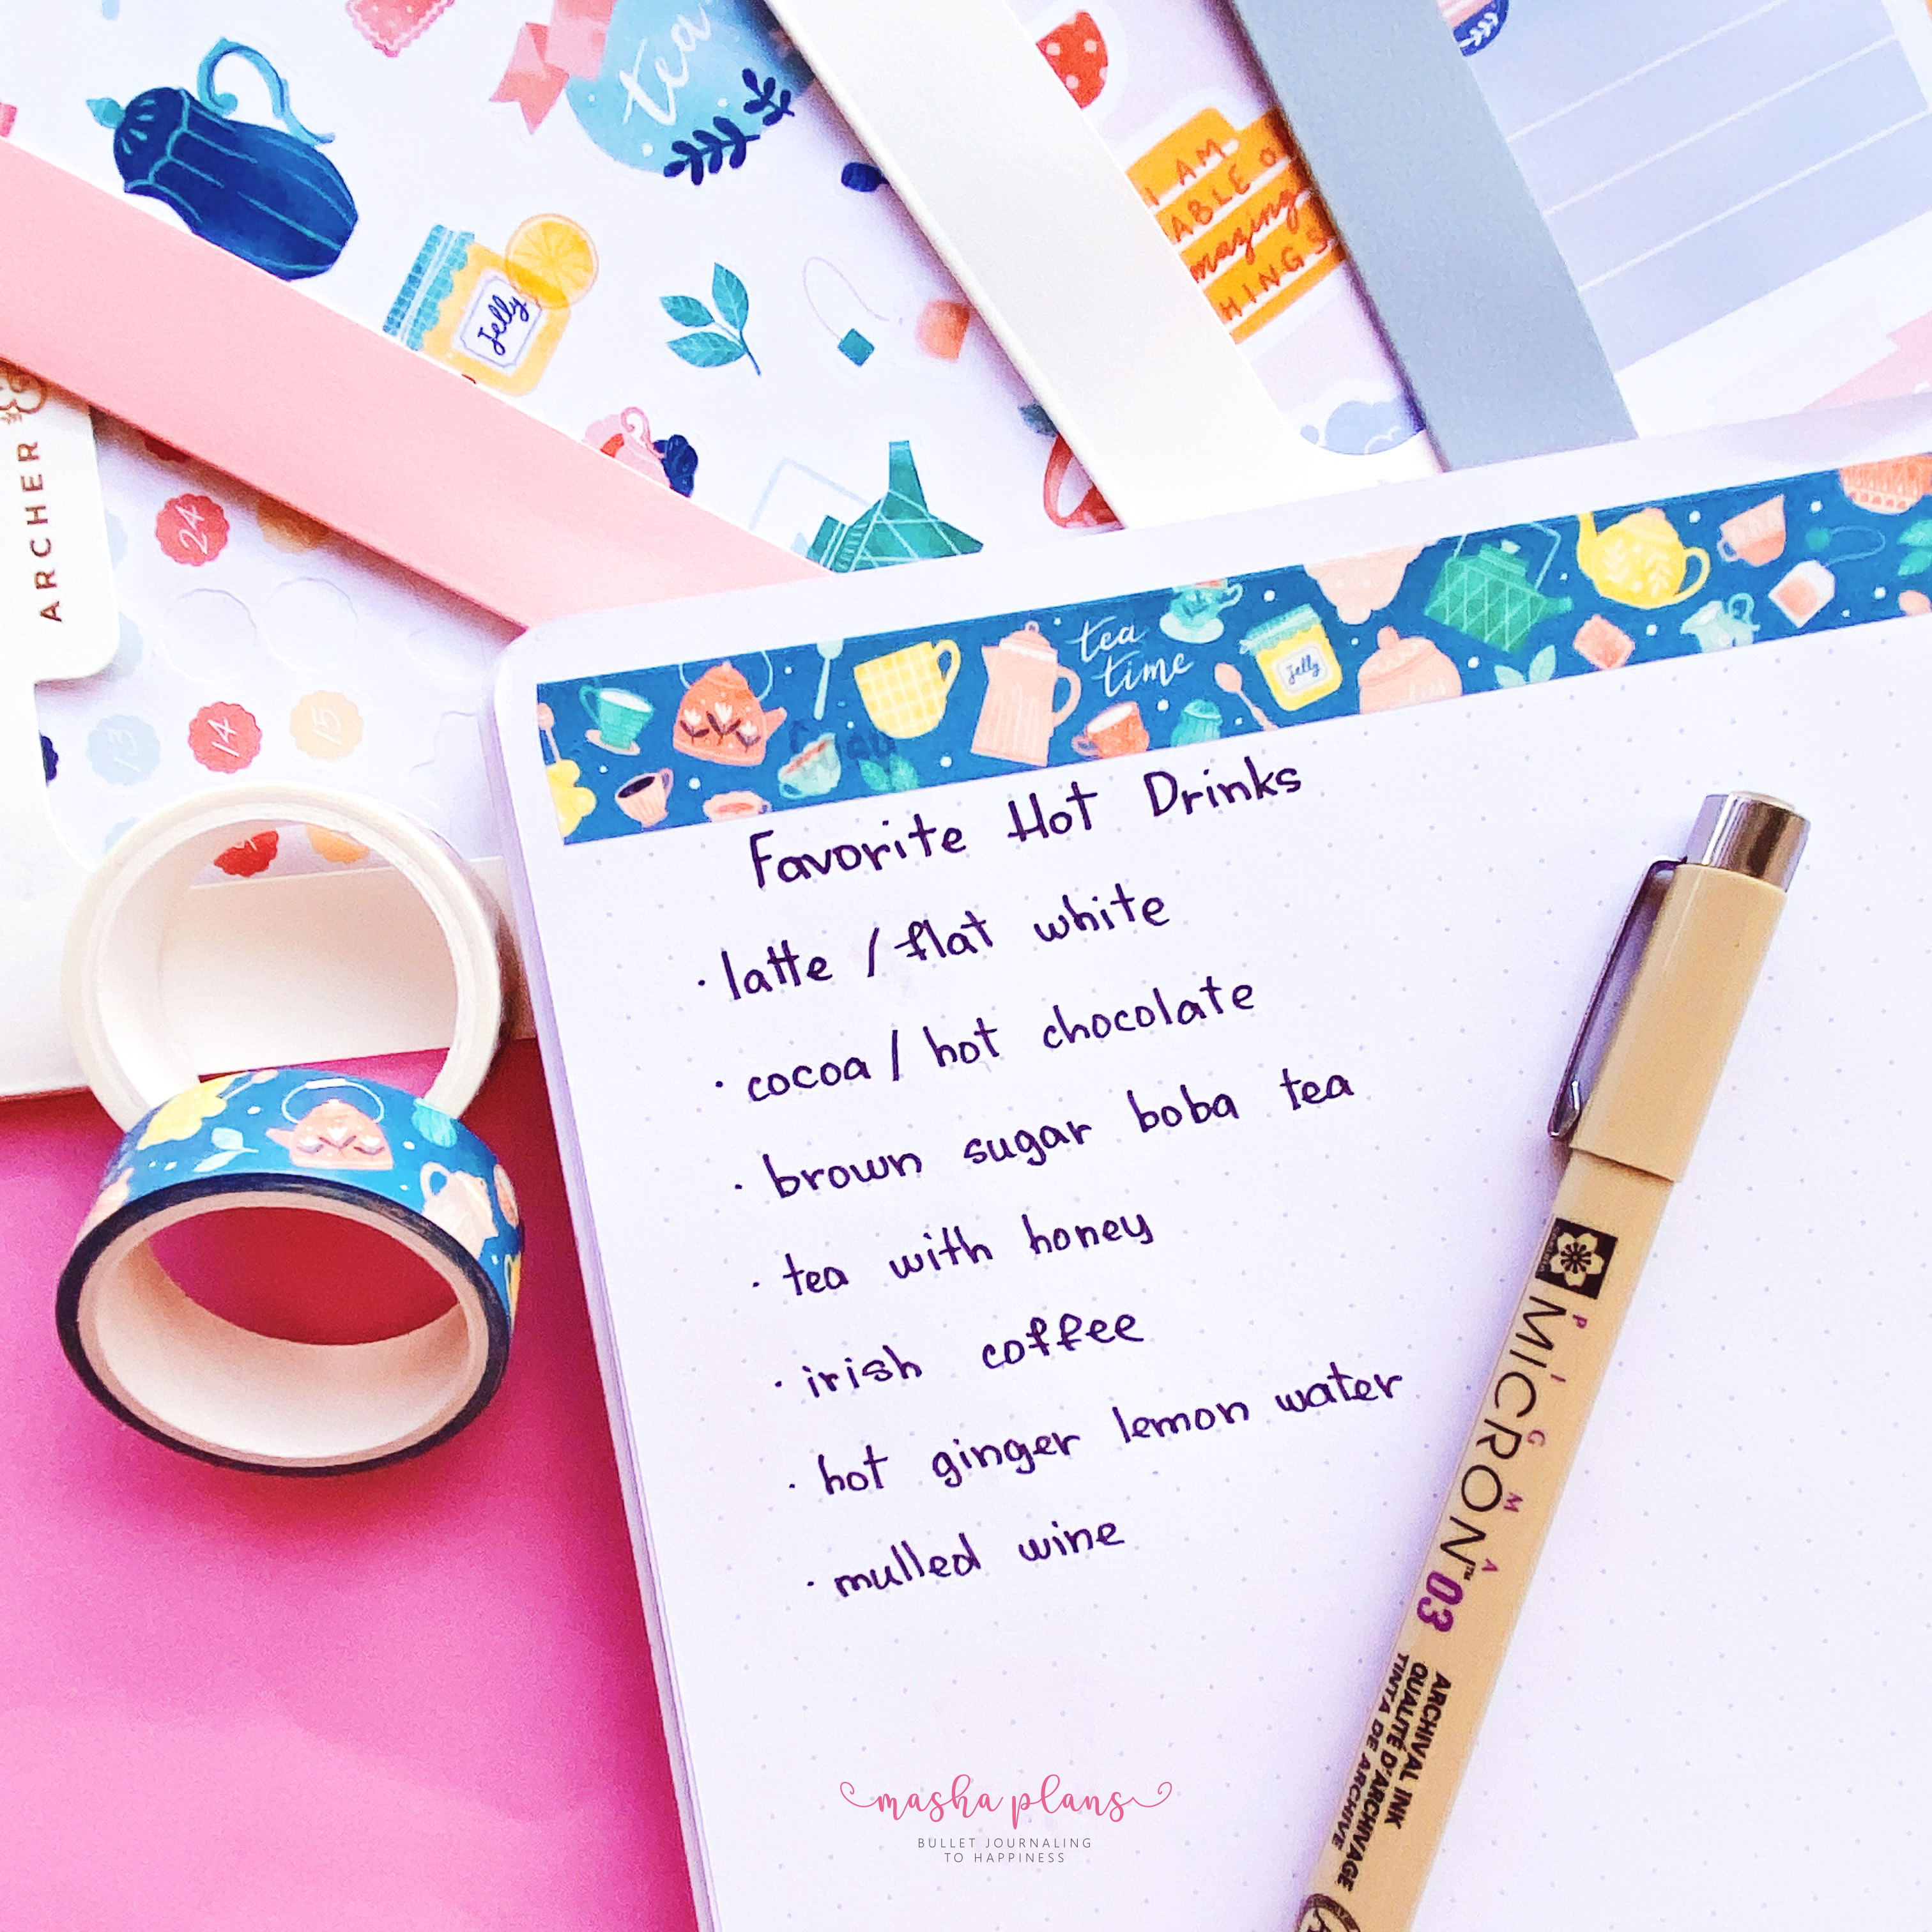 tea
Jelly
I AM
ABLE
mazing
HINGS
ARCHER
24
13
14
15
tea
time
Jelly
Favorite Hot Drinks
· latte / flat white
· cocoa / hot chocolate
· brown sugar boba tea
· tea with honey
· irish coffee
· hot ginger lemon water
· mulled wine
PIGMA
MICRON™ 03
ARCHIVAL INK
QUALITÉ D'ARCHIVAGE
TINTA DE ARCHIVE
masha plans
BULLET JOURNALING
TO HAPPINESS